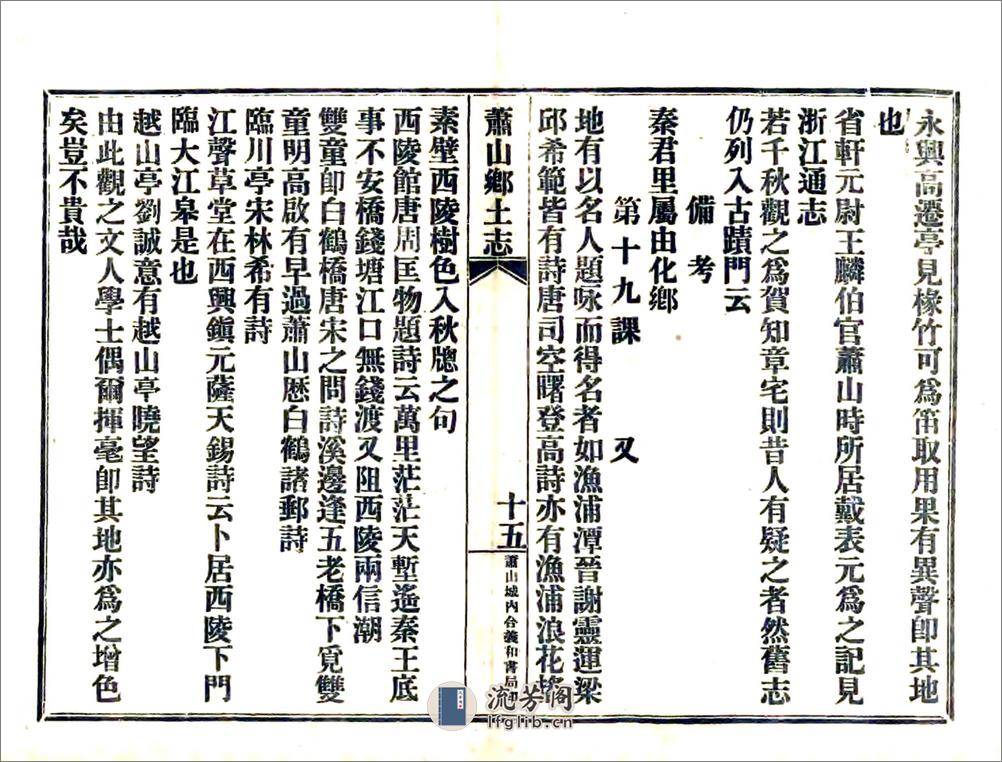 永興高遷亭見椽竹可爲笛取用果有異聲卽其地
也
省軒元尉王麟伯官蕭山時所居戴表元爲之記見
浙江通志
若千秋觀之爲賀知章宅則昔人有疑之者然舊志
仍列入古蹟門云
備考
秦君里屬由化鄉
第十九課 又
地有以名人題咏而得名者如漁浦潭晉謝靈運梁
邱希範皆有詩唐司空曙登高詩亦有漁浦浪花搖
蕭山鄉土志
十五
蕭山城內合義和書局印
素壁西陵樹色入秋牕之句
西陵館唐周匡物題詩云萬里茫茫天塹遙秦王底
事不安橋錢塘江口無錢渡又阻西陵兩信潮
雙童卽白鶴橋唐宋之問詩溪邊逢五老橋下覓雙
童明高啟有早過蕭山歷白鶴諸郵詩
臨川亭宋林希有詩
江聲草堂在西興鎭元薩天錫詩云卜居西陵下門
臨大江臯是也
越山亭劉誠意有越山亭曉望詩
由此觀之文人學士偶爾揮毫卽其地亦爲之增色
矣豈不貴哉
流芳阁
lfglib.cn